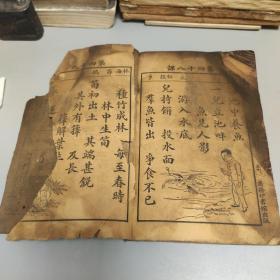 第四十八課
池中養魚
一兒立池畔
魚見人影
游入水底
兒持餅 投水面
羣魚皆出 爭食不已
種竹成林 每至春時
林中生筍
筍初出土 其端甚銳
其外有籜 及長
籜解葉生